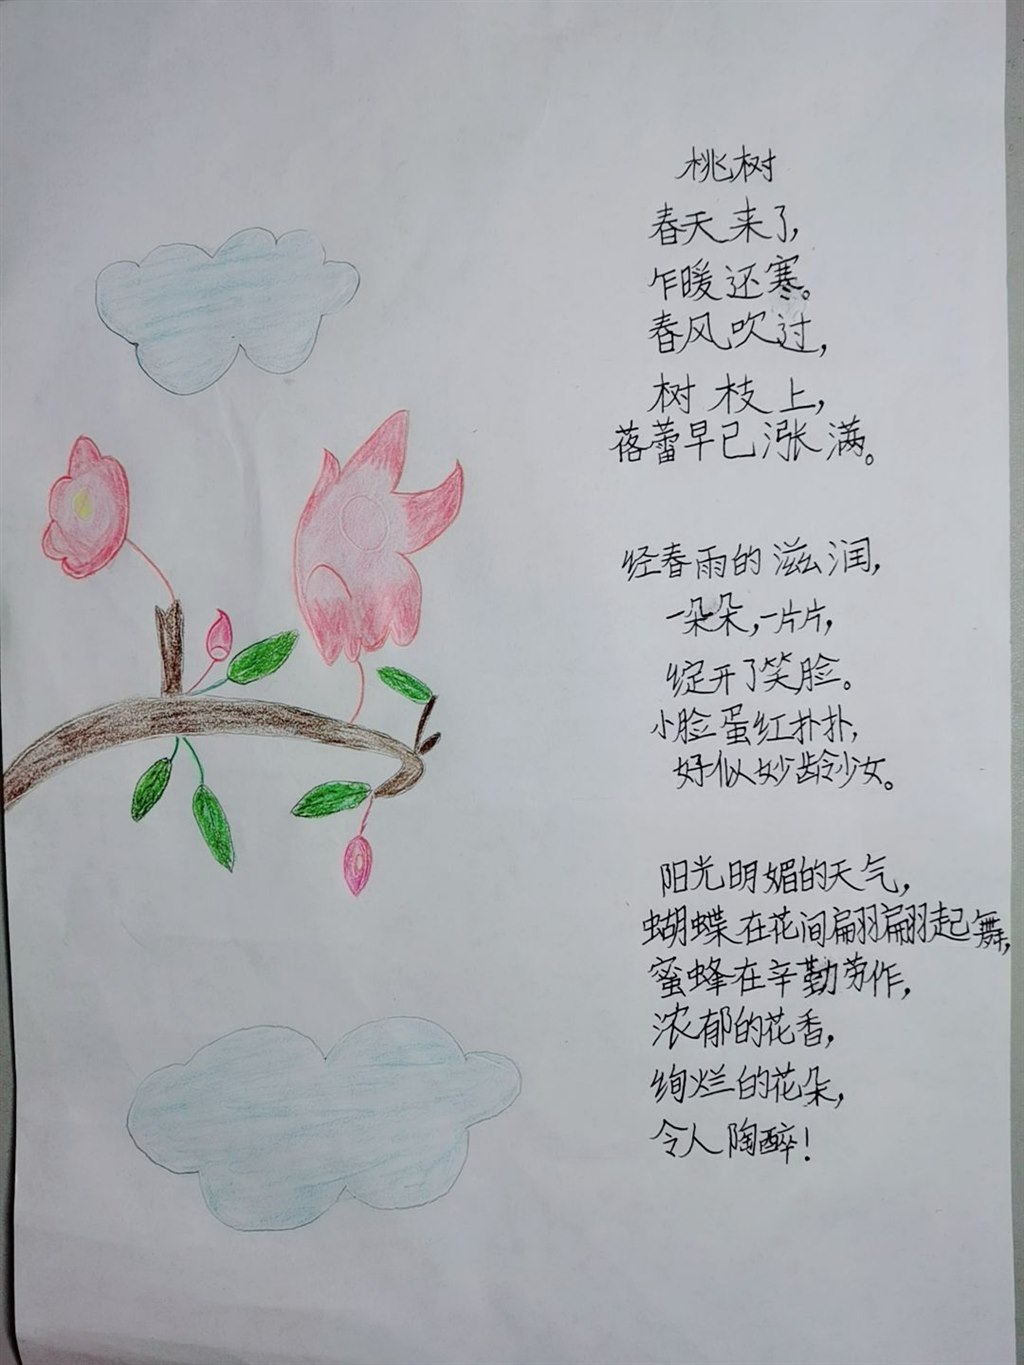 桃树
春天来了，
乍暖还寒。
春风吹过，
树枝上，
蓓蕾早已涨满。
经春雨的滋润，
一朵朵，一片片，
绽开了笑脸。
小脸蛋红扑扑，
好似妙龄少女。
阳光明媚的天气，
蝴蝶在花间翩翩起舞，
蜜蜂在辛勤劳作，
浓郁的花香，
绚烂的花朵，
令人陶醉！